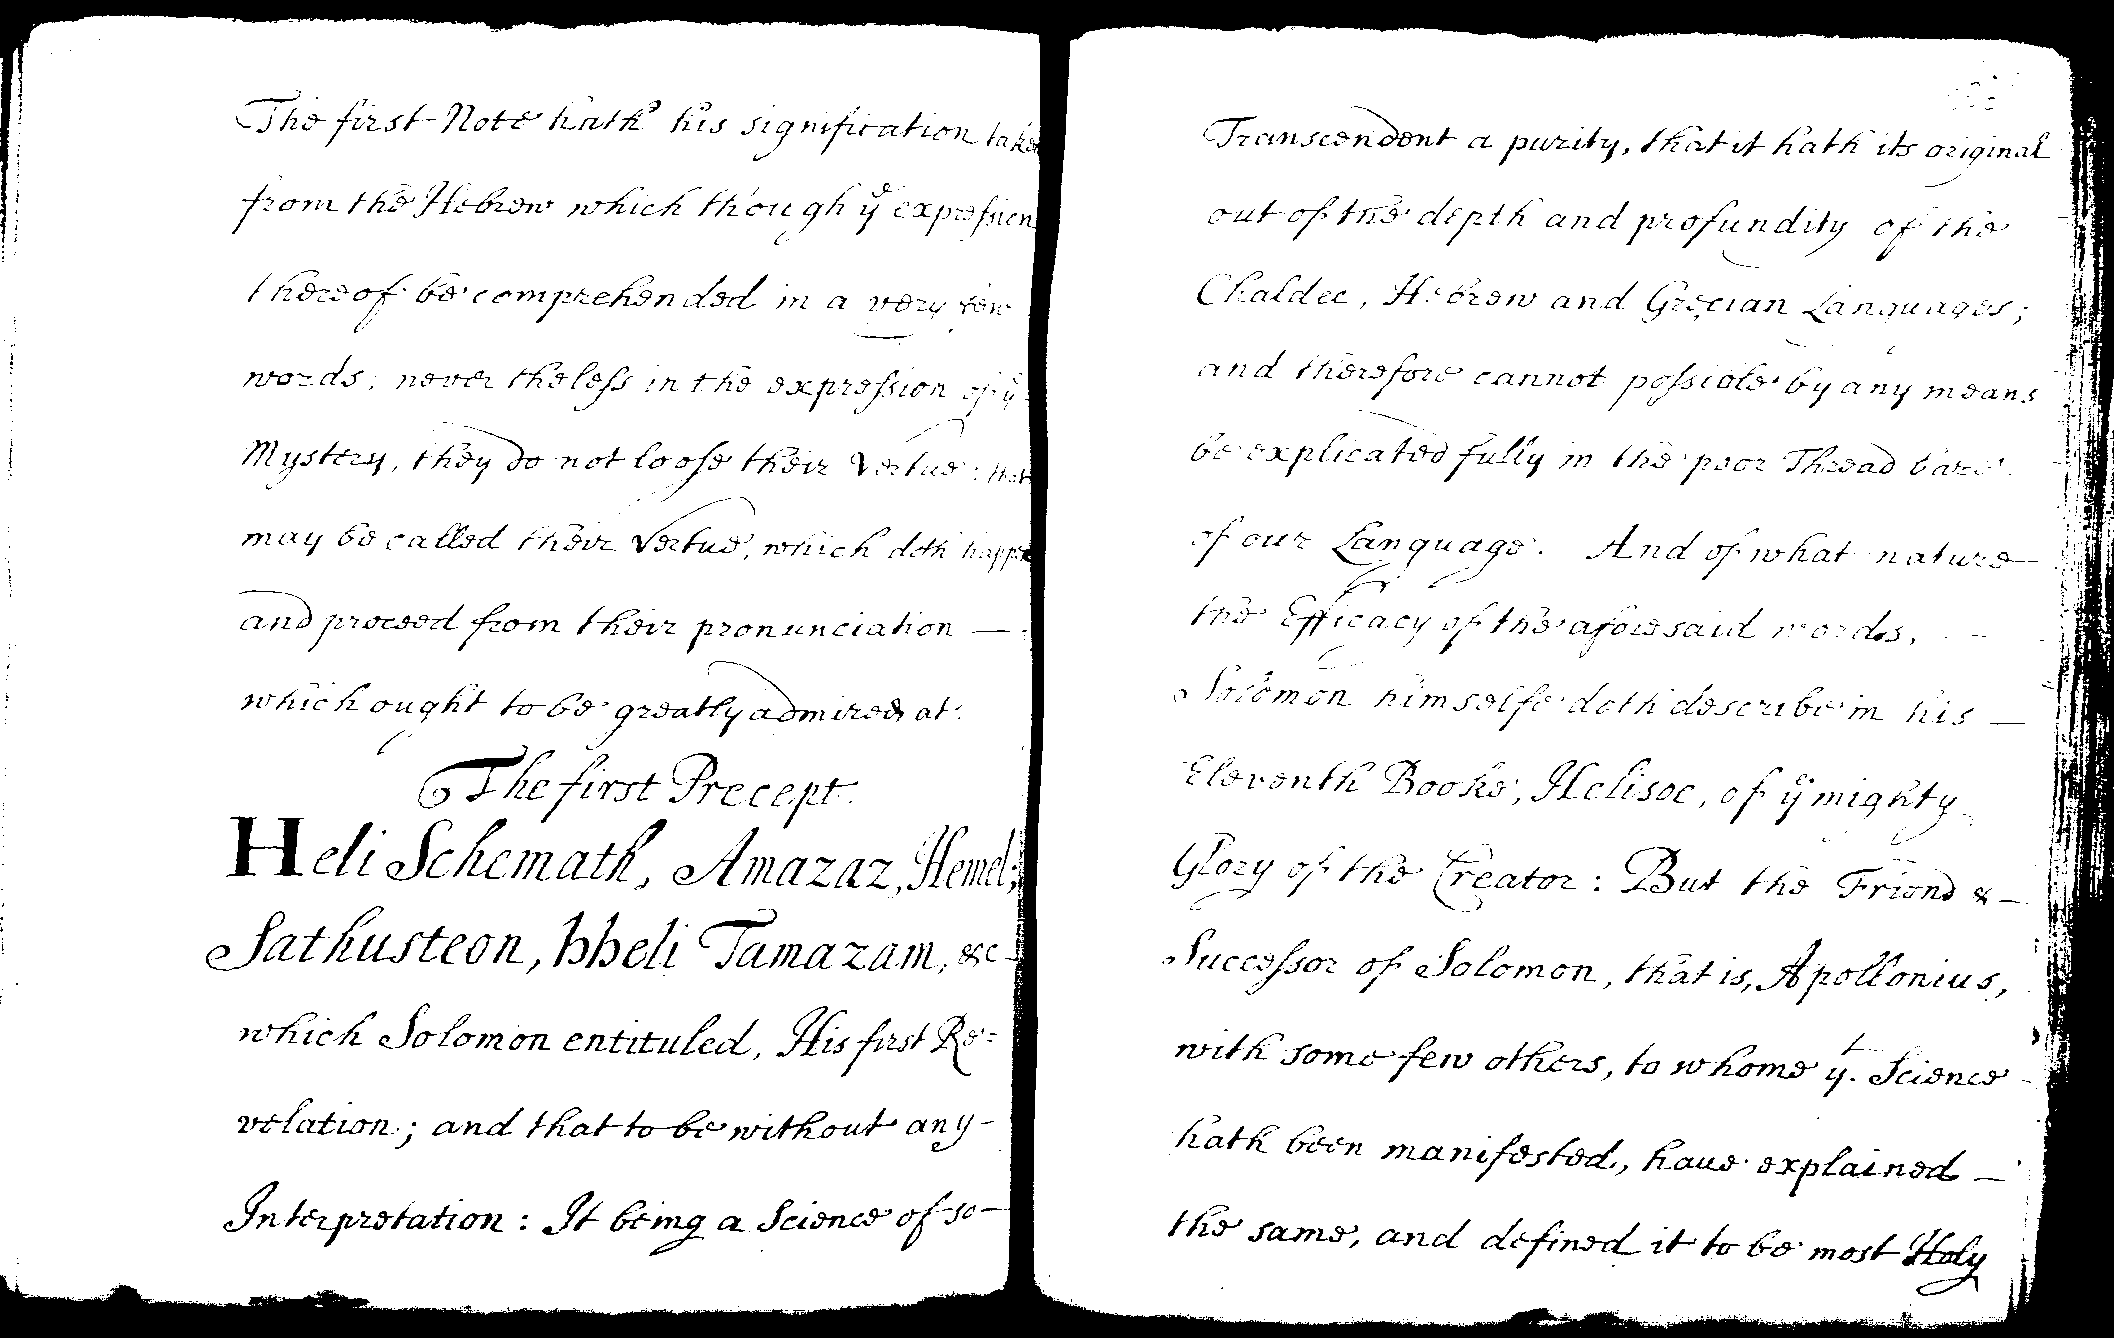 The first Note hath his signification take
from the Hebrew which though yͤ expression
thereof be comprehended in a very few
words; nevertheless in the expression of yͤ
Mystery, they do not loose their Vertue: that
may be called their Vertue, which doth happen
and proceed from their pronunciation —
which ought to be greatly admired at.
The first Precept.
Heli Schemath, Amazaz, Hemel;
Sathusteon, hheli Tamazam, &c —
which Solomon entituled, His first Re=
velation; and that to be without any —
Interpretation: It being a Science of so —
Transcendent a purity, that it hath its original
out of the depth and profundity of the
Chaldee, Hebrew and Grecian Languages;
and therefore cannot possible by any means
be explicated fully in the poor Thread bare
of our Language. And of what nature —
the Efficacy of the aforesaid words, —
Solomon himselfe doth describe in his —
Eleventh Booke, Helisoe, of yͤ mighty
Glory of the Creator: But the Friend & —
Successor of Solomon, that is, Apollonius,
with some few others, to whome yͭ. Science —
hath been manifested, haue explained —
the same, and defined it to be most Holy